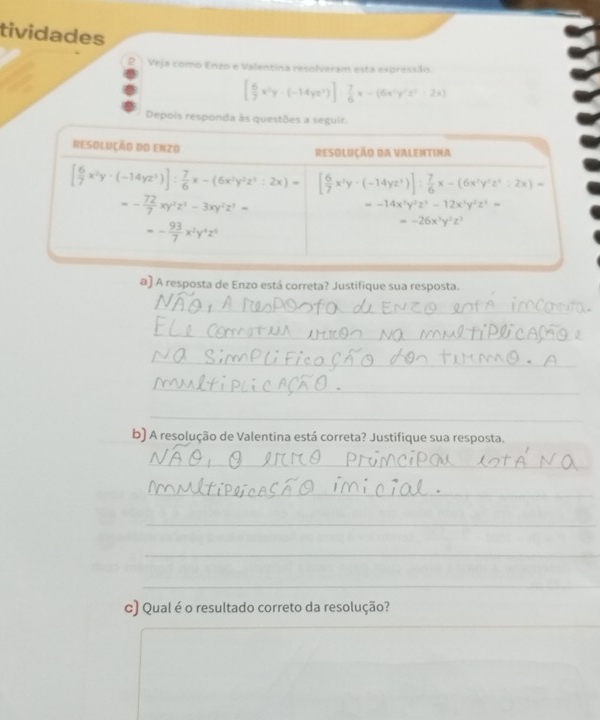 tividades
2 Veja como Enzo e Valentina resolveram esta expressão.
[6/7 x²y · (−14yz³)] : 7/6 x − (6x²y²z³ : 2x)
Depois responda às questões a seguir.
RESOLUÇÃO DO ENZO
[6/7 x²y · (−14yz³)] : 7/6 x − (6x²y²z³ : 2x) =
= −72/7 xy²z³ − 3xy²z³ =
= −93/7 x²y⁴z⁶
RESOLUÇÃO DA VALENTINA
[6/7 x²y · (−14yz³)] : 7/6 x − (6x²y²z³ : 2x) =
= −14x³y²z³ − 12x³y²z³ =
= −26x³y²z³
a) A resposta de Enzo está correta? Justifique sua resposta.
NÃO, A resposta de ENZO está incorreta.
ELE cometeu erros NA multiplicação e
NA Simplificação dos termo. A
multiplicação.
b) A resolução de Valentina está correta? Justifique sua resposta.
NÃO, O erro principal está NA
multiplicação inicial.
c) Qual é o resultado correto da resolução?